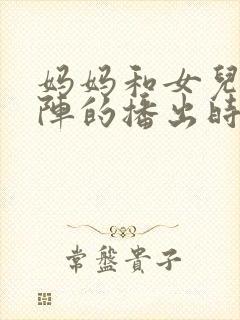 妈妈和女兒
陣的播出時
常盤貴子